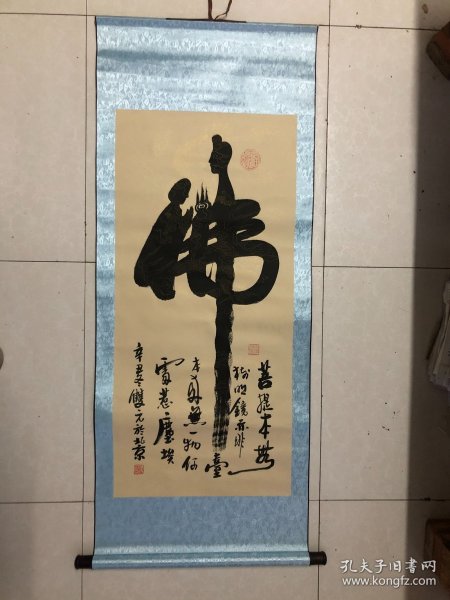 佛
菩提本無
樹明鏡亦非
臺
本來無一物何
處惹塵埃
孔夫子旧书网
www.kongfz.com